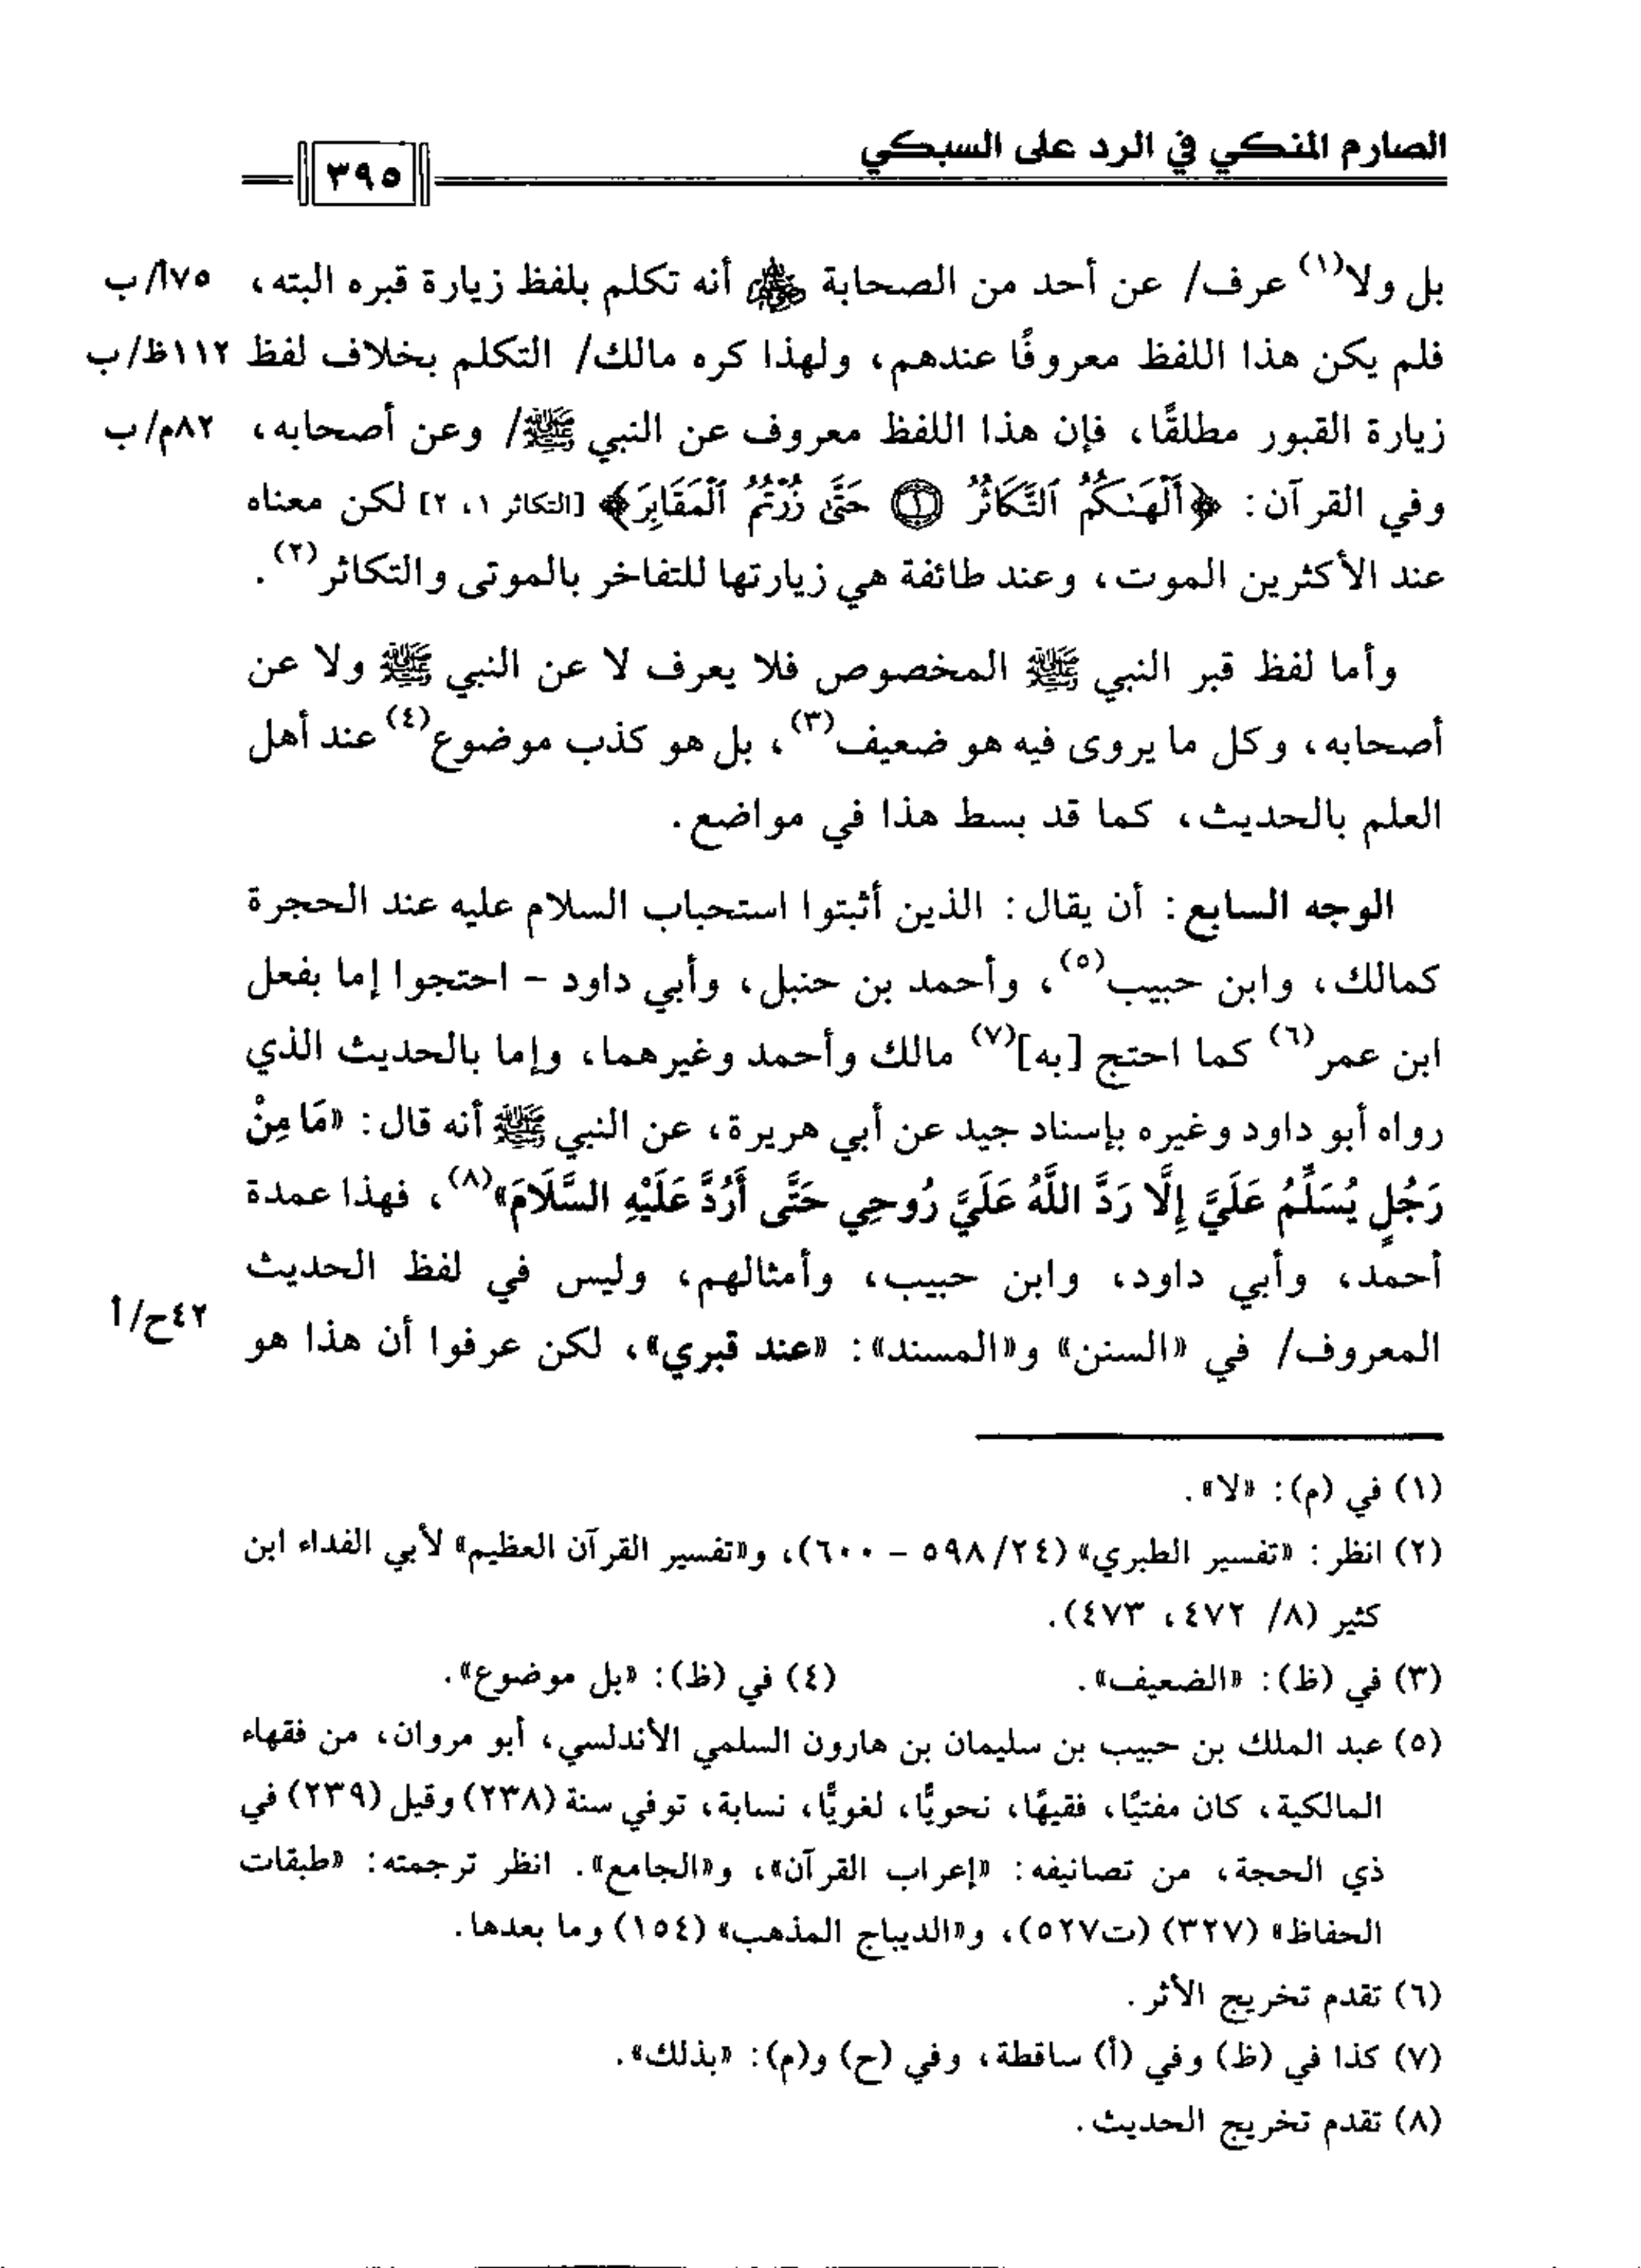 الصارم المنكي في الرد على السبكي
٣٩٥
بل ولا(١) عرف/ عن أحد من الصحابة ﷺ أنه تكلم بلفظ زيارة قبره البته، ٧٥أ/ب
فلم يكن هذا اللفظ معروفًا عندهم، ولهذا كره مالك/ التكلم بخلاف لفظ ١١٢ظ/ب
زيارة القبور مطلقًا، فإن هذا اللفظ معروف عن النبي ﷺ/ وعن أصحابه، ٨٢م/ب
وفي القرآن: ﴿أَلْهَىٰكُمُ ٱلتَّكَاثُرُ ۝١ حَتَّىٰ زُرْتُمُ ٱلْمَقَابِرَ﴾ [التكاثر ١، ٢] لكن معناه
عند الأكثرين الموت، وعند طائفة هي زيارتها للتفاخر بالموتى والتكاثر(٢).
وأما لفظ قبر النبي ﷺ المخصوص فلا يعرف لا عن النبي ﷺ ولا عن
أصحابه، وكل ما يروى فيه هو ضعيف(٣)، بل هو كذب موضوع(٤) عند أهل
العلم بالحديث، كما قد بسط هذا في مواضع.
الوجه السابع: أن يقال: الذين أثبتوا استحباب السلام عليه عند الحجرة
كمالك، وابن حبيب(٥)، وأحمد بن حنبل، وأبي داود - احتجوا إما بفعل
ابن عمر(٦) كما احتج [به](٧) مالك وأحمد وغيرهما، وإما بالحديث الذي
رواه أبو داود وغيره بإسناد جيد عن أبي هريرة، عن النبي ﷺ أنه قال: «مَا مِنْ
رَجُلٍ يُسَلِّمُ عَلَيَّ إِلَّا رَدَّ اللَّهُ عَلَيَّ رُوحِي حَتَّى أَرُدَّ عَلَيْهِ السَّلَامَ»(٨)، فهذا عمدة
أحمد، وأبي داود، وابن حبيب، وأمثالهم، وليس في لفظ الحديث
المعروف/ في «السنن» و«المسند»: «عند قبري»، لكن عرفوا أن هذا هو ٤٢ح/أ
(١) في (م): «لا».
(٢) انظر: «تفسير الطبري» (٢٤/٥٩٨ - ٦٠٠)، و«تفسير القرآن العظيم» لأبي الفداء ابن
كثير (٨/ ٤٧٢، ٤٧٣).
(٣) في (ظ): «الضعيف». (٤) في (ظ): «بل موضوع».
(٥) عبد الملك بن حبيب بن سليمان بن هارون السلمي الأندلسي، أبو مروان، من فقهاء
المالكية، كان مفتيًا، فقيهًا، نحويًّا، لغويًّا، نسابة، توفي سنة (٢٣٨) وقيل (٢٣٩) في
ذي الحجة، من تصانيفه: «إعراب القرآن»، و«الجامع». انظر ترجمته: «طبقات
الحفاظ» (٣٢٧) (ت٥٢٧)، و«الديباج المذهب» (١٥٤) وما بعدها.
(٦) تقدم تخريج الأثر.
(٧) كذا في (ظ) وفي (أ) ساقطة، وفي (ح) و(م): «بذلك».
(٨) تقدم تخريج الحديث.